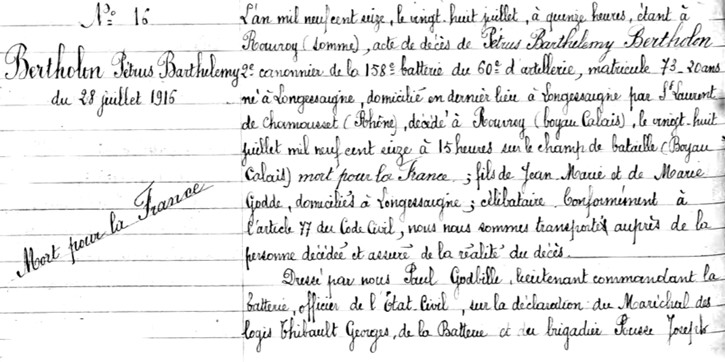 No. 16
Bertholon Pétrus Barthelemy
du 28 juillet 1916
Mort pour la France
L'an mil neuf cent seize, le vingt-huit juillet, à quinze heures, étant à
Rouvroy (Somme), acte de décès de Pétrus Barthelemy Bertholon
2e canonnier de la 158e batterie du 60e d'artillerie, matricule 73_20ans
né à Longessaigne, domicilié en dernier lieu à Longessaigne par St Laurent
de Chamousset (Rhône), décédé à Rouvroy (boyau Calais), le vingt-huit
juillet mil neuf cent seize à 15 heures sur le champ de bataille (Boyau
Calais) mort pour la France ; fils de Jean Marie et de Marie
Godde, domiciliés à Longessaigne ; célibataire. Conformément à
l'article 77 du Code Civil, nous nous sommes transportés auprès de la
personne décédée et assuré de la réalité du décès.
Dressé par nous Paul Godbille, lieutenant commandant la
batterie, officier de l'État-Civil, sur la déclaration du Maréchal des
logis Thibault Georges, de la Batterie et du brigadier Russe Joseph